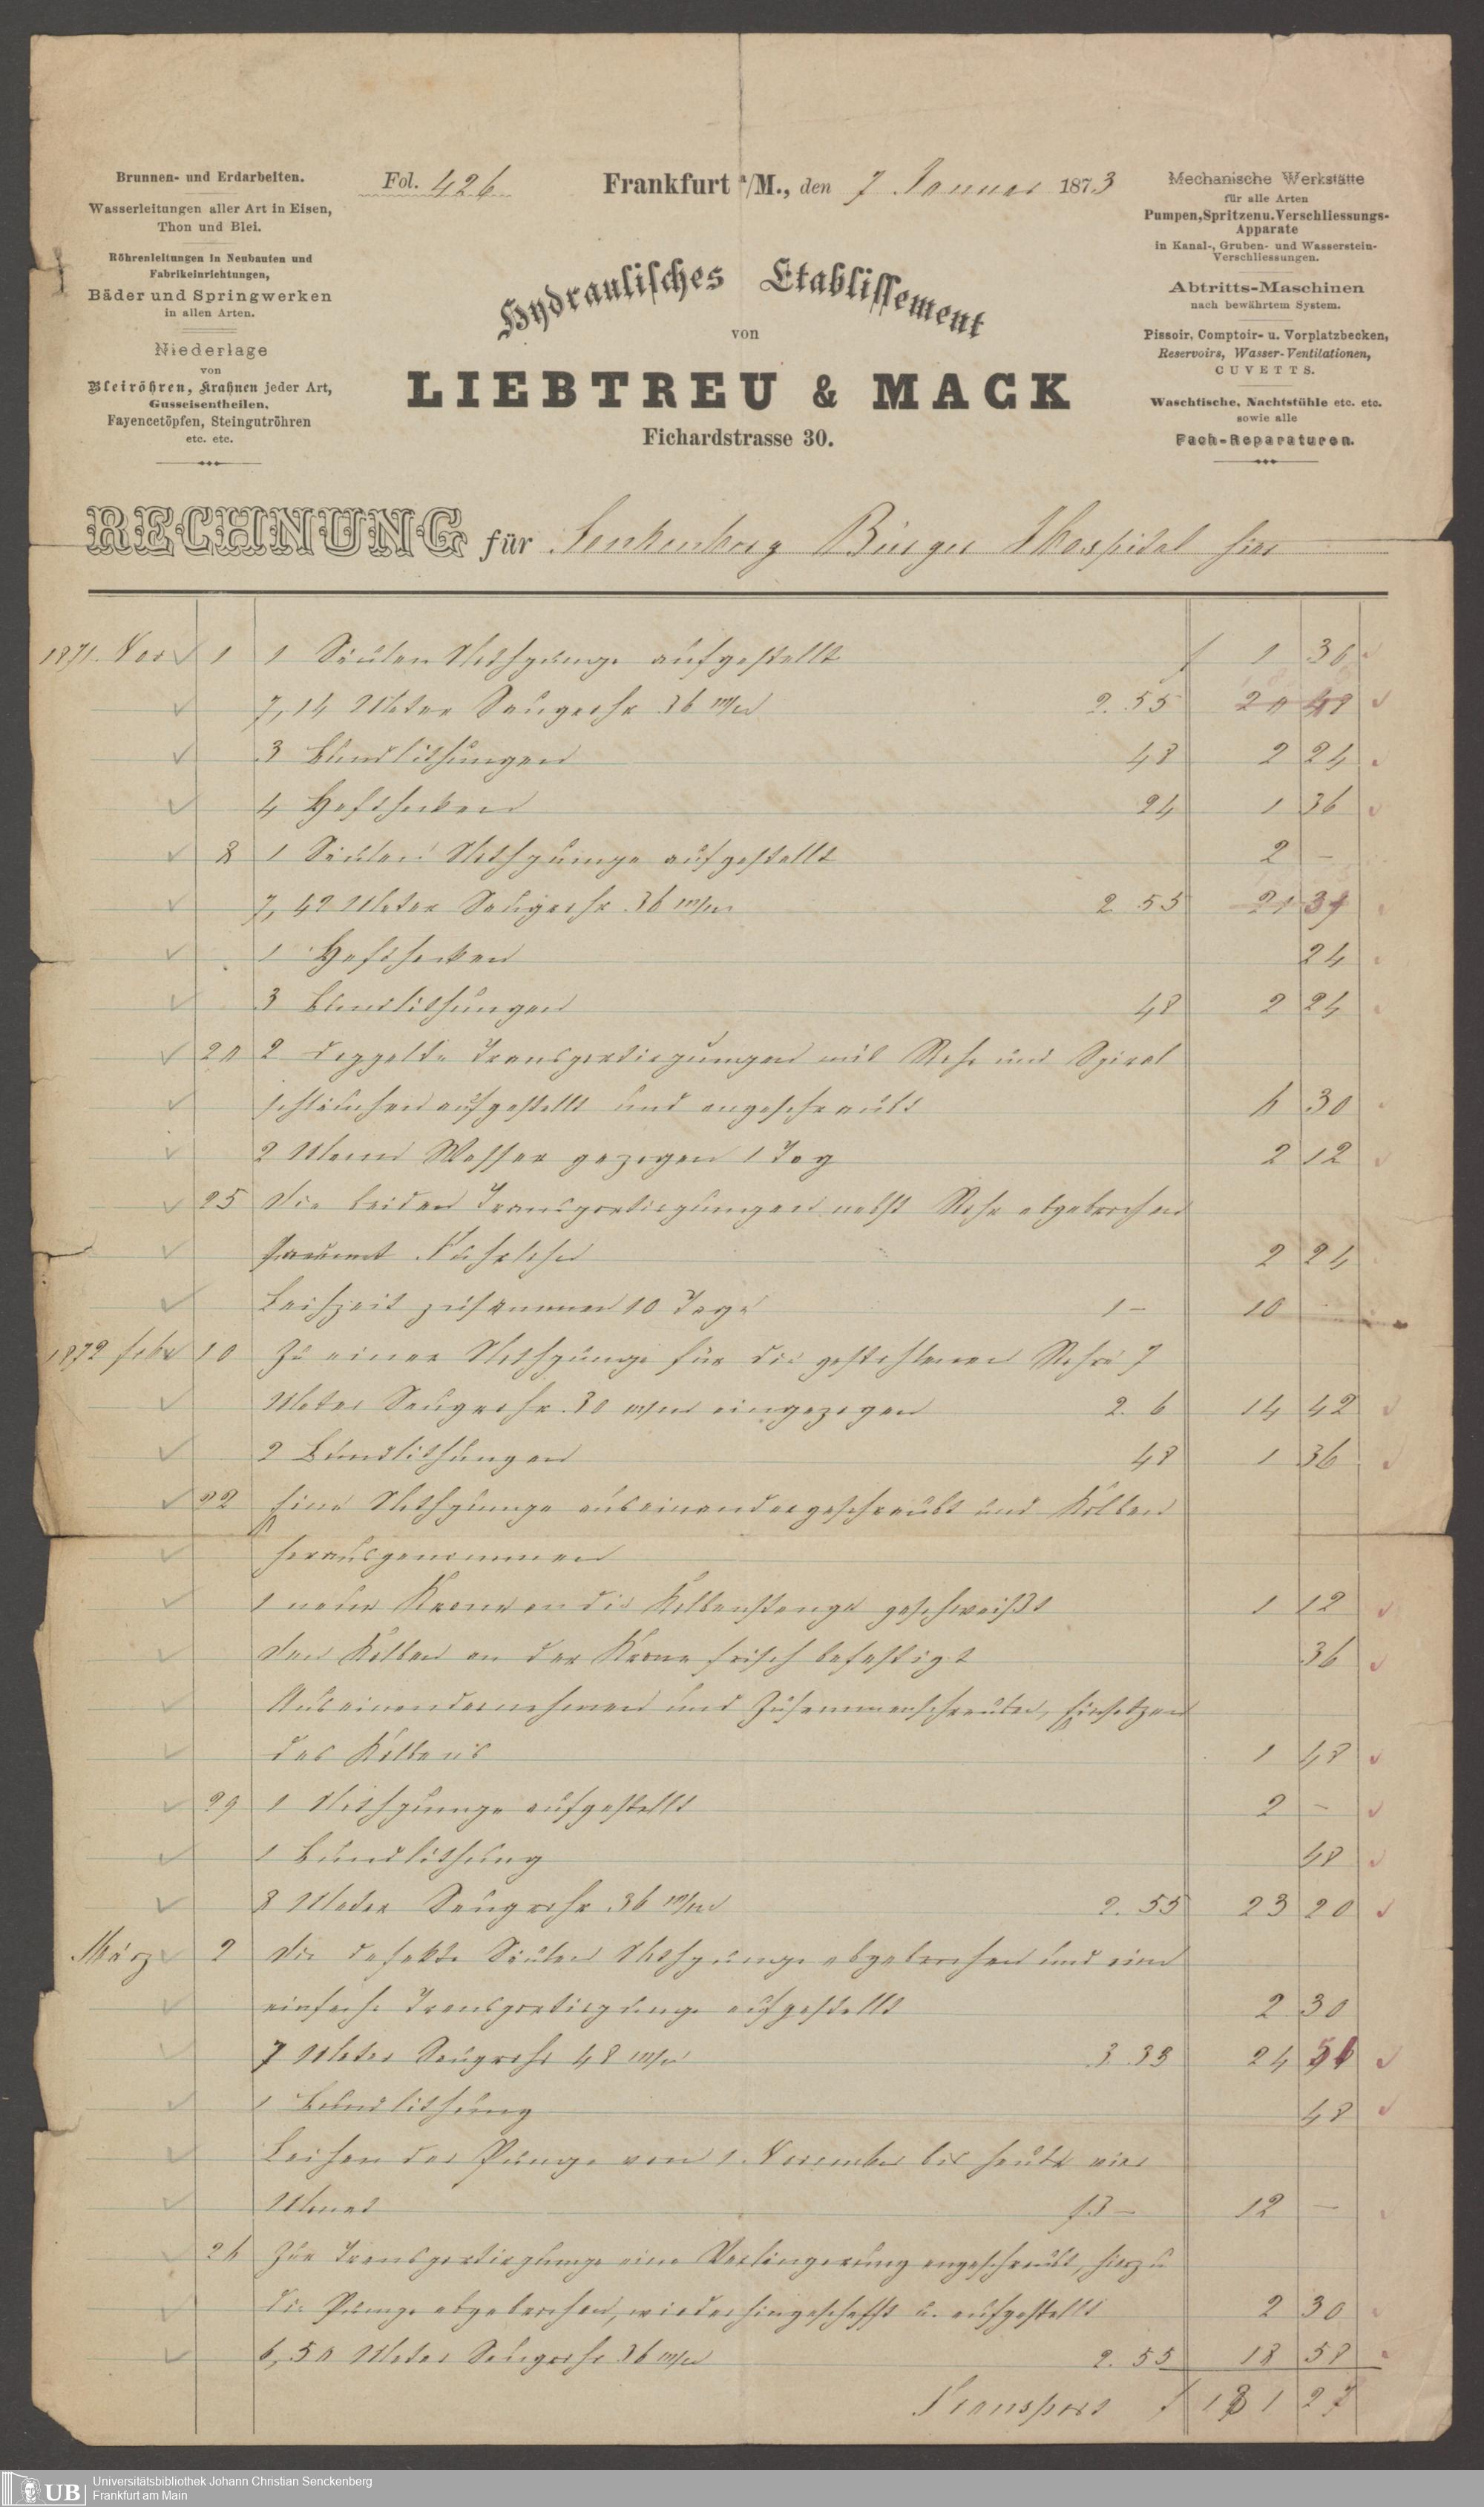 Brunnen- und Erdarbeiten.
Wasserleitungen aller Art in Eisen,
Thon und Blei.
Röhrenleitungen in Neubauten und
Fabrikeinrichtungen,
Bäder und Springwerken
in allen Arten.
Niederlage
von
Bleiröhren, Krahnen jeder Art,
Gusseisentheilen,
Fayencetöpfen, Steingutröhren
etc. etc.
Fol. 426
Frankfurt a/M., den 7 Januar 1873
Hydraulisches Etablissement
von
LIEBTREU & MACK
Fichardstrasse 30.
Mechanische Werkstätte
für alle Arten
Pumpen, Spritzen u. Verschliessungs-
Apparate
in Kanal-, Gruben- und Wasserstein-
Verschliessungen.
Abtritts-Maschinen
nach bewährtem System.
Pissoir, Comptoir- u. Vorplatzbecken,
Reservoirs, Wasser-Ventilationen,
CUVETTS.
Waschtische, Nachtstühle etc. etc.
sowie alle
Fach-Reparaturen.
RECHNUNG für Senkenberg Bürger Hospital hier
1871. Nov 1 1 Säulen Nothpumpe aufgestellt f 1 36
7,14 Meter Saugrohr 36 m/m 2. 55
3 Bundlöthungen 48 2 24
4 Hafthacken 24 1 36
8 1 Säulen Nothpumpe aufgestellt 2 –
7,42 Meter Saugrohr 36 m/m 2 55 21
1 Hafthacken 24
3 Bundlöthungen 48 2 24
20 2 doppelte Transportirpumpen mit Rohr und Spiral
schläuchen aufgestellt und angeschraubt 6 30
2 Mann Wasser gezogen 1 Tag 2 12
25 Die beiden Transportirpumpen nebst Rohr abgebrochen
sammt Fuhrlohn 2 24
Leihzeit zusammen 10 Tage 1 – 10
1872 Febr 10 Zu einer Nothpumpe für die gestohlenen Rohre 7
Meter Saugrohr 30 m/m eingezogen 2. 6 14 42
2 Bundlöthungen 48 1 36
22 Eine Nothpumpe auseinandergeschraubt und Kolben
herausgenommen
1 neue Krone an die Kolbenstange geschweißt 1 12
Den Kolben an der Krone frisch befestigt 36
Auseinandernehmen und Zusammenschrauben, Einsetzen
des Kolbens 1 48
29 1 Nothpumpe aufgestellt 2 –
1 Bundlöthung 48
8 Meter Saugrohr 36 m/m 2. 55 23 20
März 2 Die defekte Säulen Nothpumpe abgebrochen und eine
einfache Transportirpumpe aufgestellt 2 30
7 Meter Saugrohr 48 m/m 3 33 24 51
1 Bundlöthung 48
Leihen der Pumpe vom 1. November bis heute vier
Monat f 3 – 12 –
26 Zur Transportirpumpe eine Verlängerung angeschraubt, hierzu
die Pumpe abgebrochen, wieder hingeschafft u. aufgestellt 2 30
6,50 Meter Saugrohr 36 m/m 2. 55 18 58
Transport f 181 27
UB Universitätsbibliothek Johann Christian Senckenberg
Frankfurt am Main